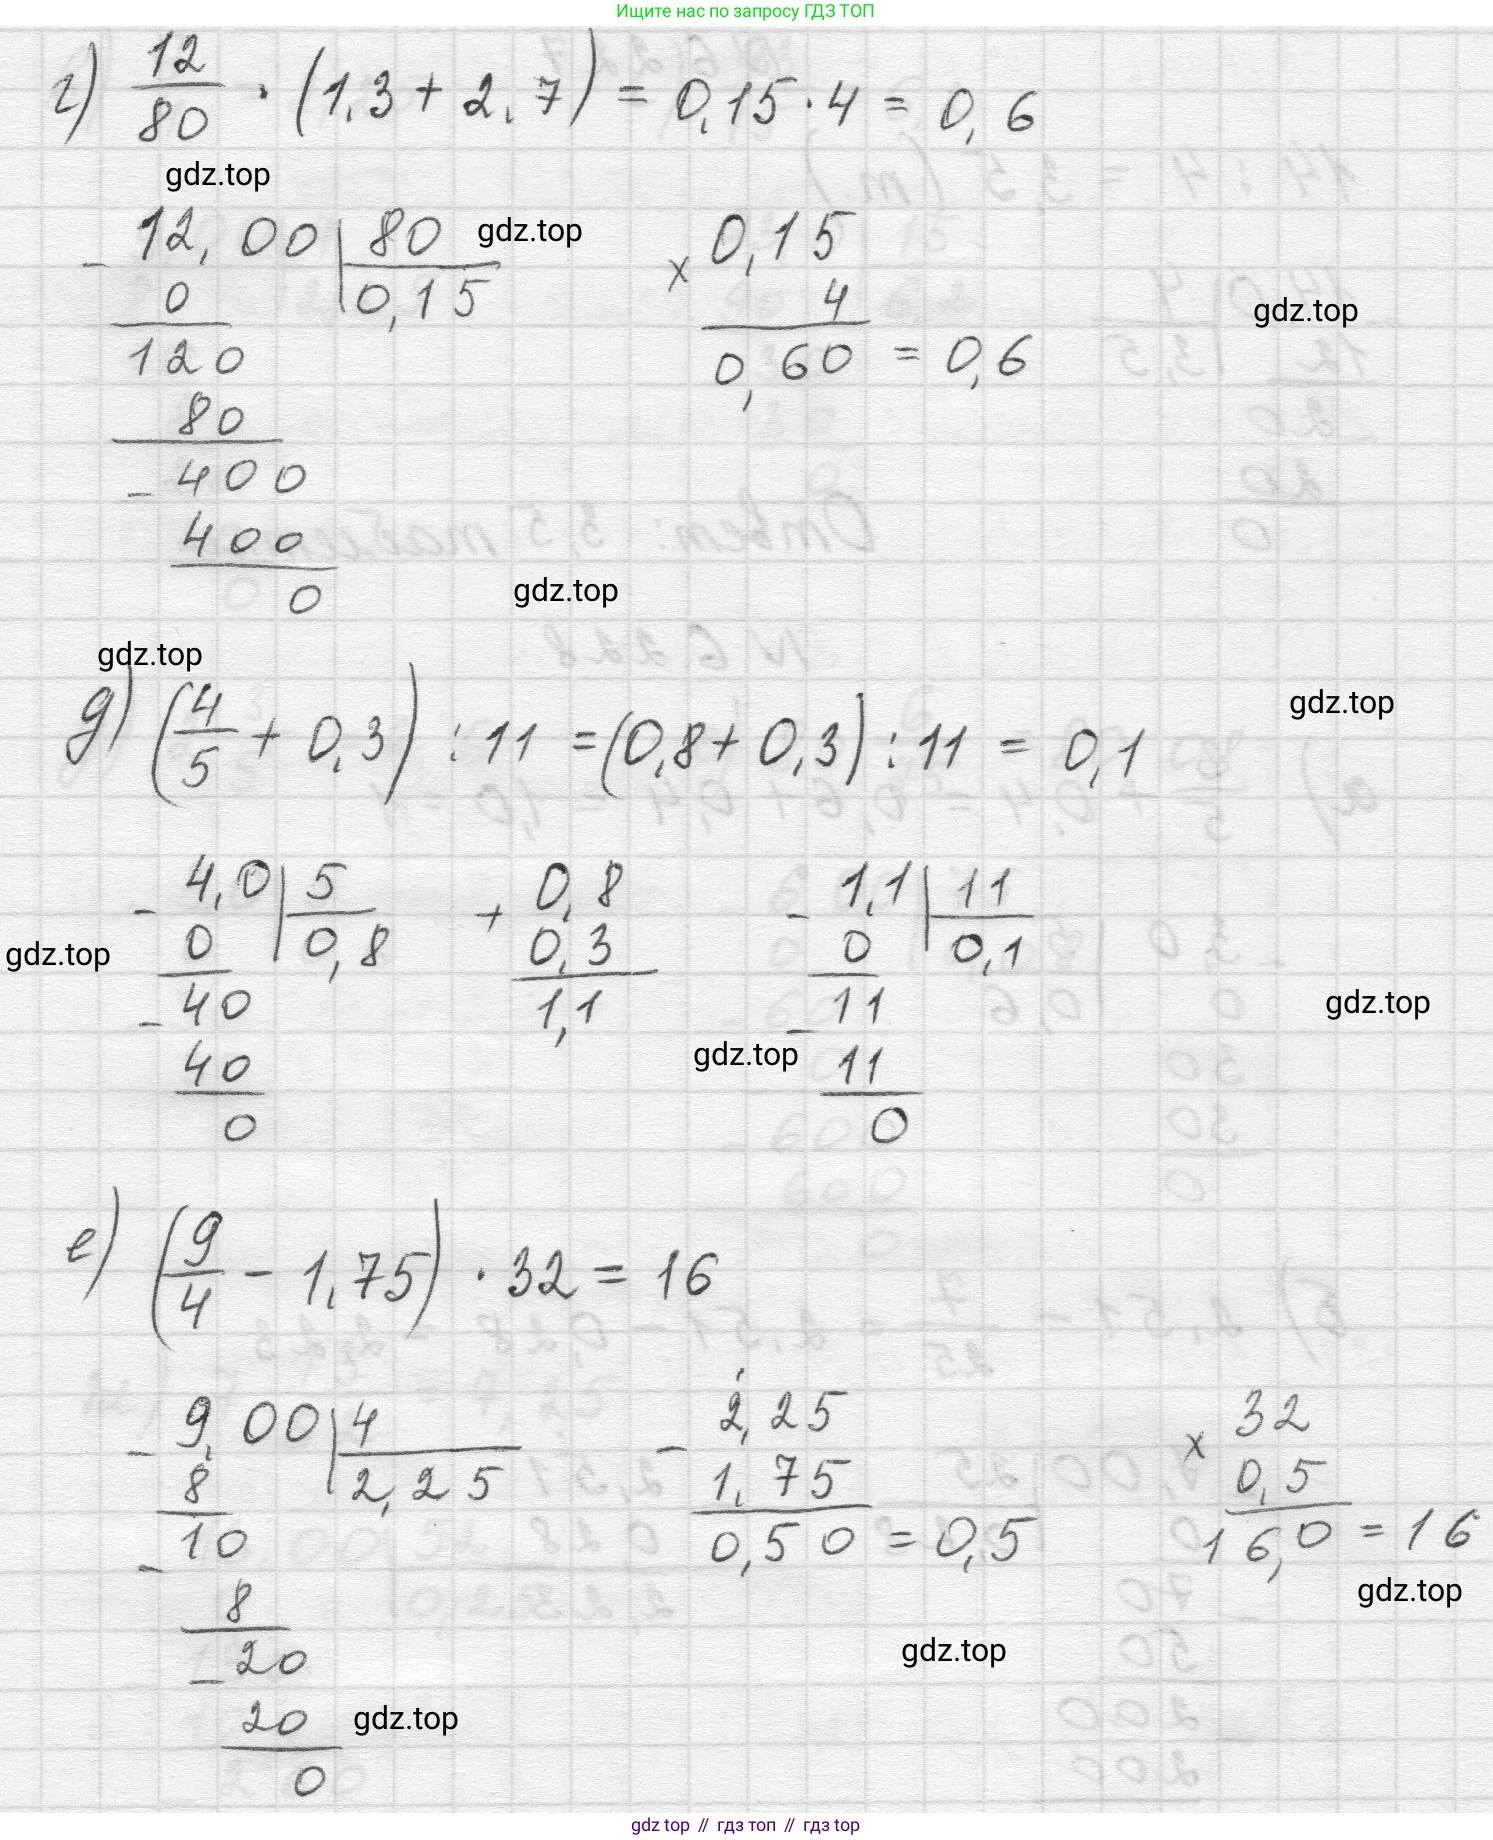 Ищите нас по запросу ГДЗ ТОП
г) 12/80 · (1,3 + 2,7) = 0,15 · 4 = 0,6
gdz.top
- 12,00 | 80
0 | 0,15
120
80
- 400
400
0
gdz.top
× 0,15
4
0,60 = 0,6
gdz.top
gdz.top
gdz.top
д) (4/5 + 0,3) : 11 = (0,8 + 0,3) : 11 = 0,1
gdz.top
- 4,0 | 5
0 | 0,8
- 40
40
0
+ 0,8
0,3
1,1
- 1,1 | 11
0 | 0,1
- 11
11
0
gdz.top
gdz.top
gdz.top
е) (9/4 - 1,75) · 32 = 16
- 9,00 | 4
8 | 2,25
- 10
8
- 20
20
0
- 2,25
1,75
0,50 = 0,5
× 32
0,5
16,0 = 16
gdz.top
gdz.top
gdz.top
gdz top // гдз топ // гдз top